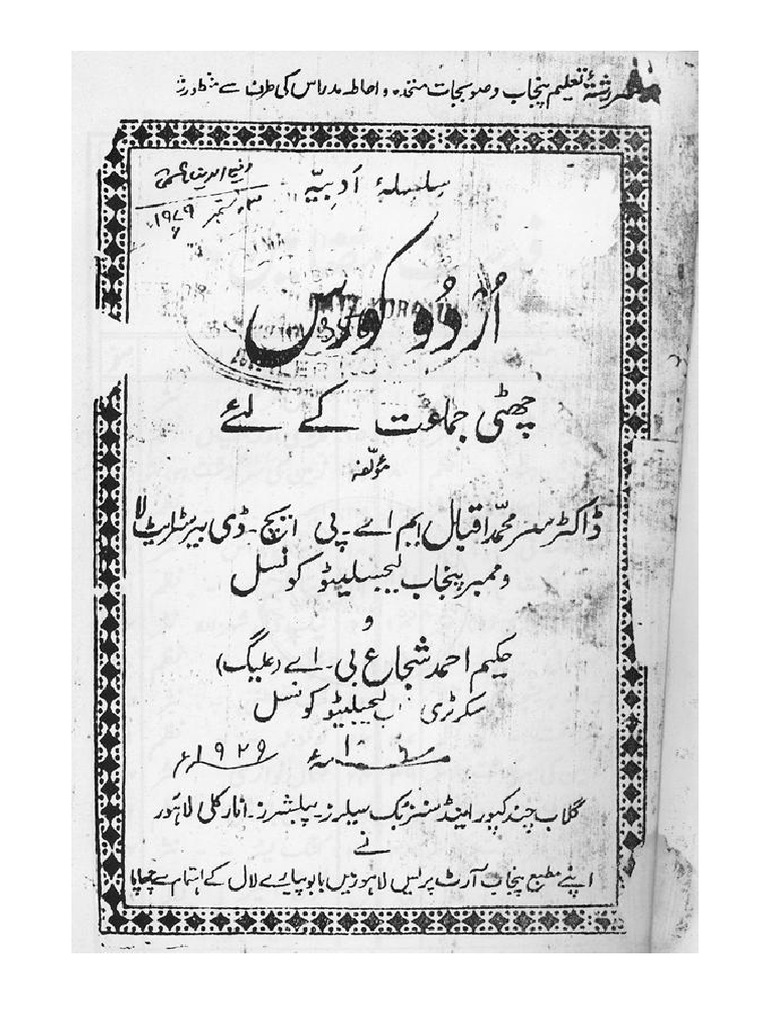 سررشتۂ تعلیم پنجاب و صوبجات متحدہ و احاطہ مدراس کی طرف سے منظور شدہ
سلسلۂ ادبیہ
رفیع الدین ہاشمی
ستمبر ۱۹۷۹ء
اُردُو کورس
چھٹی جماعت کے لئے
مؤلّفہ
ڈاکٹر سر محمّد اقبال ایم اے۔ پی ایچ۔ ڈی بیرسٹرایٹ لا
و ممبر پنجاب لیجسلیٹو کونسل
و
حکیم احمد شجاع بی۔ اے (علیگ)
سکرٹری لیجسلیٹو کونسل
۱۹۲۹ء
گلاب چند کپور اینڈ سنز بک سیلرز۔ پبلشرز۔ انارکلی لاہور
نے
اپنے مطبع پنجاب آرٹ پریس لاہور میں بابو پیارے لال کے اہتمام سے چھاپا